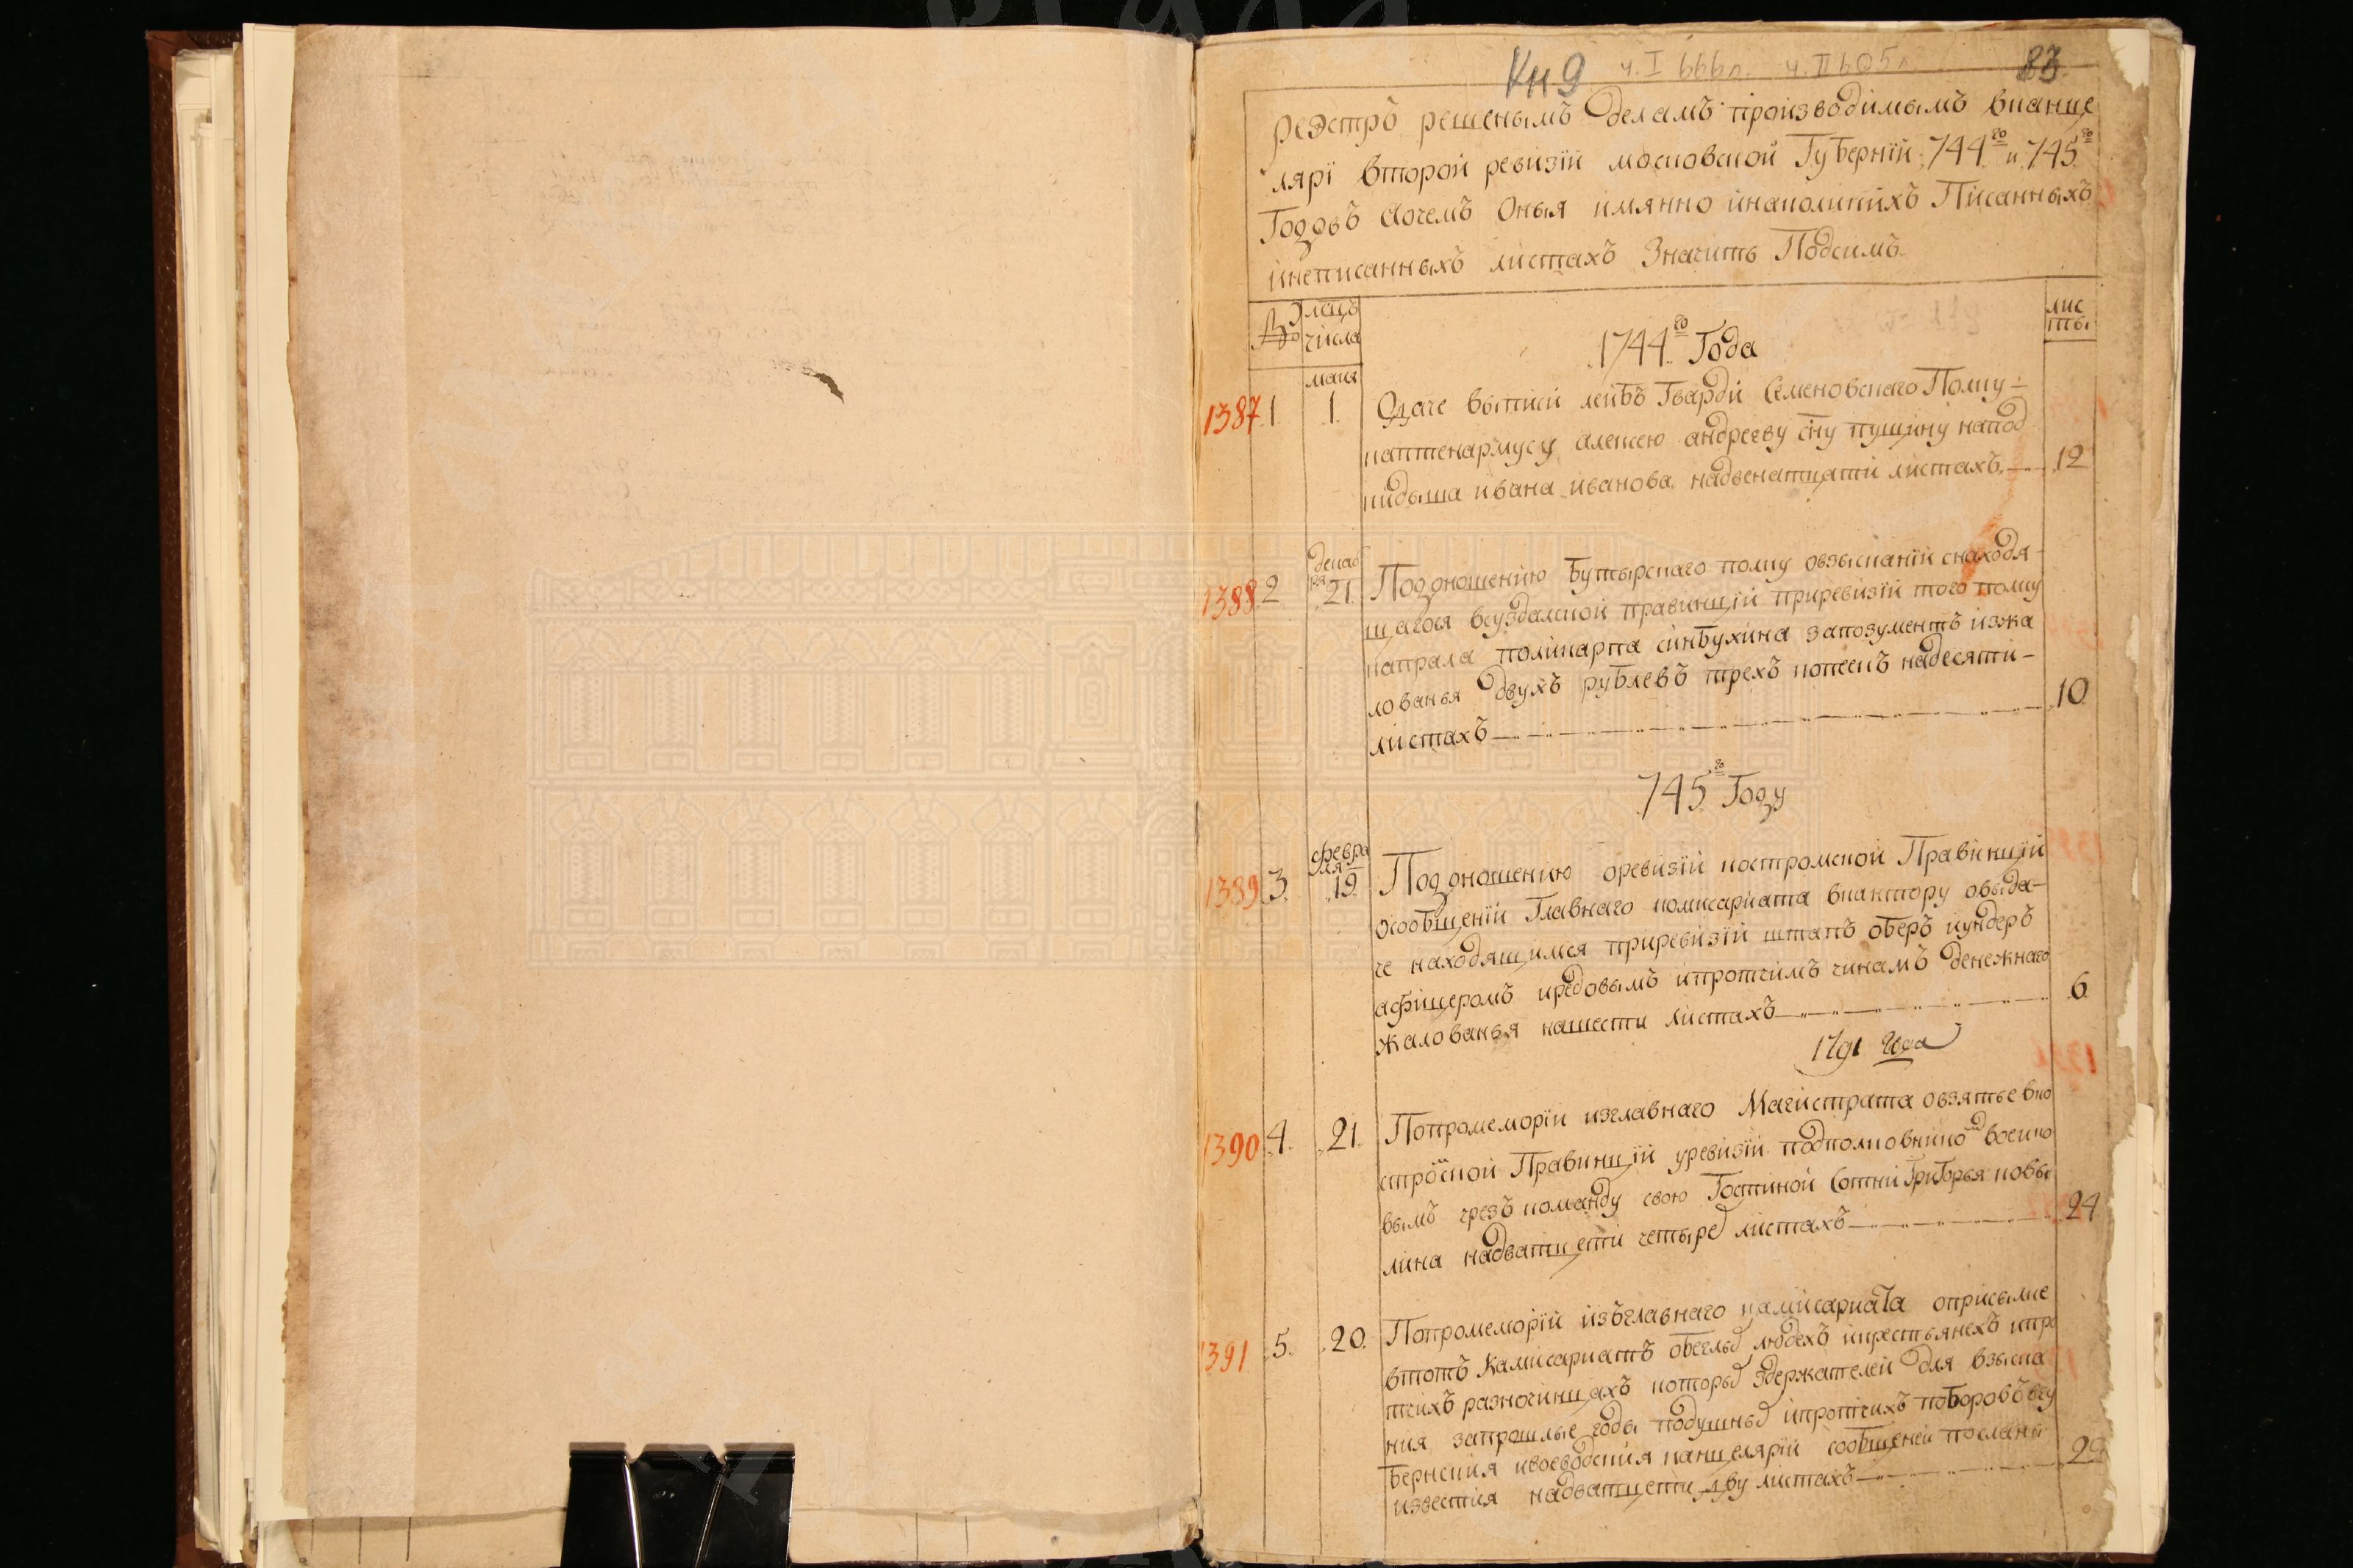 Кн 9 ч. I 666 л. ч. II 605 л 83
Реэстръ решенымъ деламъ производимымъ вканце
лярі второй ревизіи московской Губерніи 744го и 745го
Годовъ аочемъ Оныя имянно инаколикихъ Писанныхъ
інеписанныхъ листахъ Значитъ Подсимъ
№ мсцъ числа листы
1744го Года
маия
1387 1 1. Одаче выписи лейбъ Гвардіи Семеновскаго Полку
каптенармусу алексею андрееву сну пущину напод
кидыша ивана иванова надвенатцати листахъ 12
декаб
ря
1388 2 21. Подоношению Бутырскаго полку овзысканіи снаходя
щагося всуздалской правинціи приревизіи того полку
капрала поликарпа синбухина запозументъ изжа
лованья двухъ рублевъ трехъ копеекъ надесяти
листахъ 10
745го Году
февра
ля
1389 3. 19. Подоношению оревизіи костромской Правинціи
осообщеніи Главнаго комисариата вкантору овыда
че находящимся приревизіи штапъ оберъ иундеръ
афицеромъ иредовымъ ипротчимъ чинамъ денежнаго
жалованья нашести листахъ 6
года
1390 4. 21. Попромеморіи изглавнаго Магистрата овзятье вко
стромской Правинціи уревизіи подполковникомъ воеико
вымъ чрезъ команду свою Гостиной Сотни Григорья ковы
лина надватцети четырех листахъ 24
1391 5. 20. Попромеморіи ізъглавнаго камисариата оприсылке
втотъ Камисариатъ обеглых людехъ икрестьянехъ ипро
тчихъ разночинцахъ которых здержателей для взыска
ния запрошлые годы подушных ипротчихъ поборовъ вгу
бернския ивоеводския канцелярии сообщеней посланы
известия надватцети дву листахъ